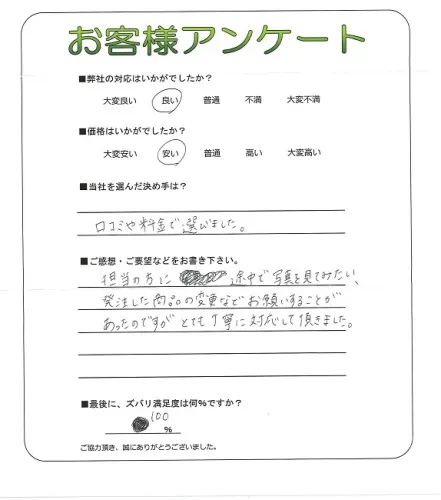 お客様アンケート
■弊社の対応はいかがでしたか？
大変良い 良い 普通 不満 大変不満
■価格はいかがでしたか？
大変安い 安い 普通 高い 大変高い
■当社を選んだ決め手は？
口コミや料金で選びました。
■ご感想・ご要望などをお書き下さい。
担当の方に 途中で写真を見てみたい、
発注した商品の変更などお願いすることが
あったのですが とても丁寧に対応して頂きました。
■最後に、ズバリ満足度は何%ですか？
100
%
ご協力頂き、誠にありがとうございました。